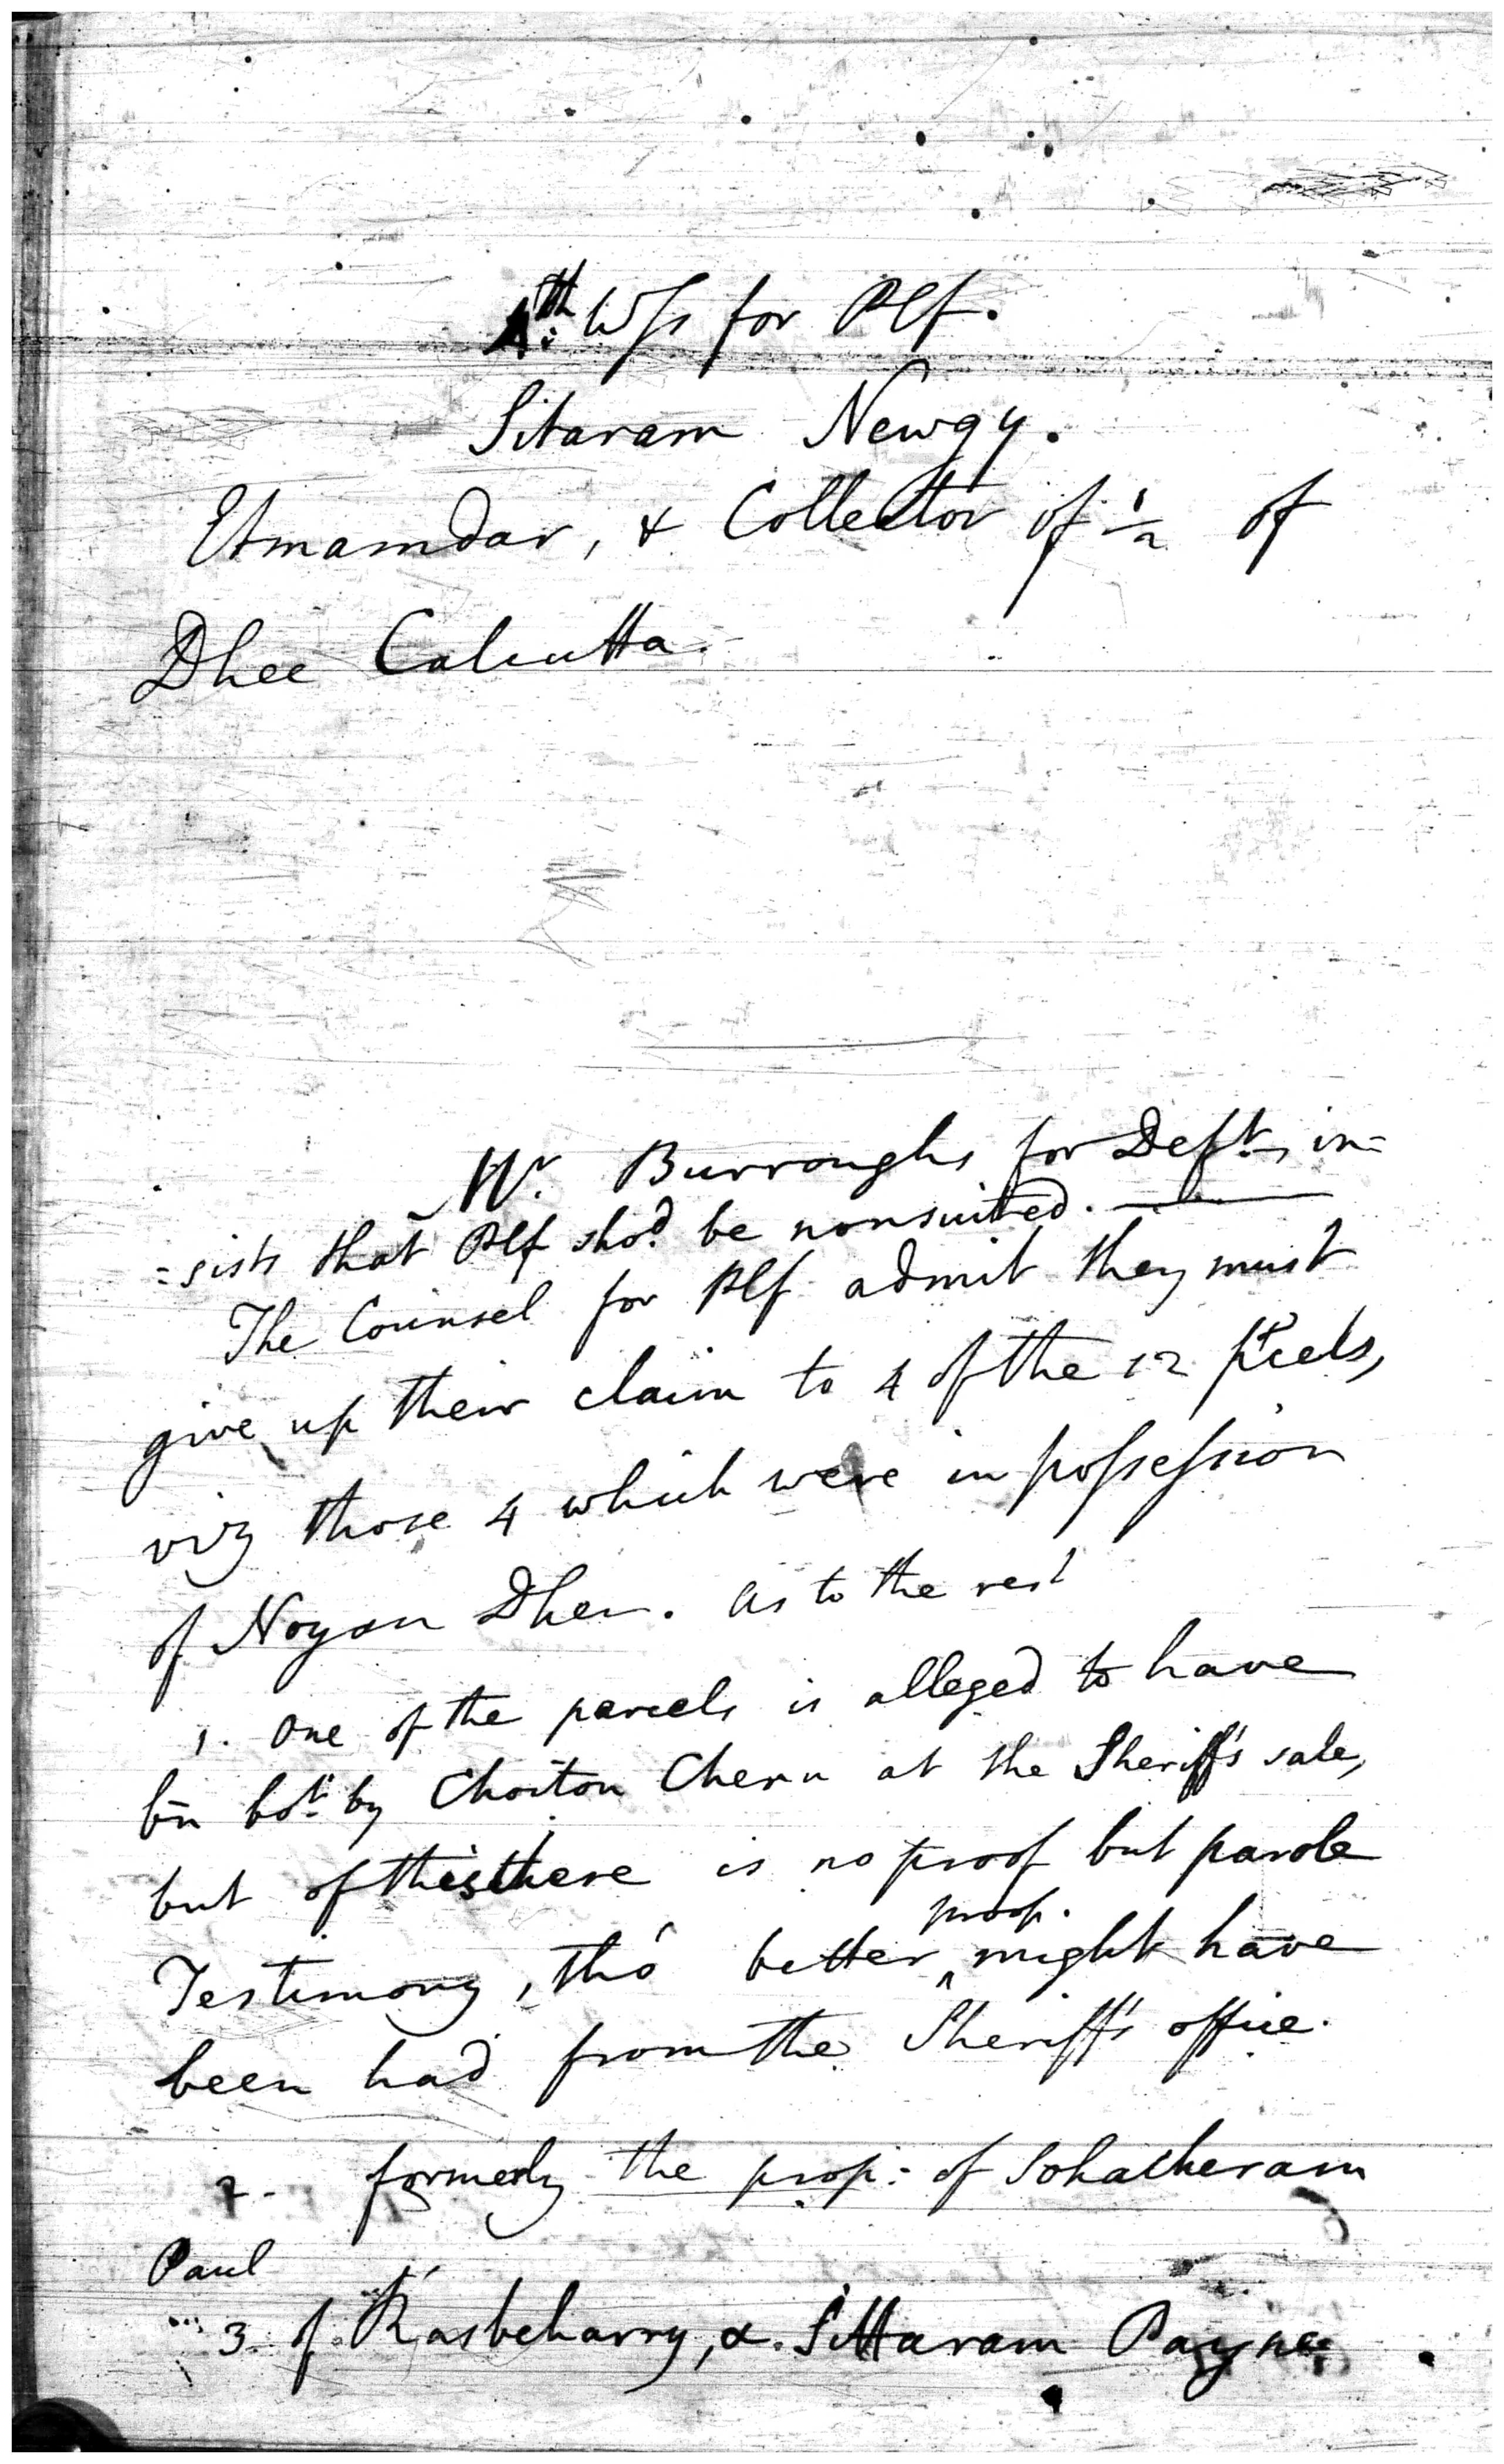 4th: Wss for Plf.
Sitaram Newgy.
Etmamdar, & Collector of ½ of
Dhee Calcutta.
Mr. Burroughs for Deft, in=
=sists that Plf shod. be nonsuited.
The Counsel for Plf admit they must
give up their claim to 4 of the 12 p'cels,
viz those 4 which were in possession
of Noyon Dher. as to the rest
1. One of the parcels is alleged to have
bn bot. by Choiton Chern at the Sheriff's sale,
but of this there is no proof but parole
Testimony, tho' better ^ proof. might have
been had from the Sheriff's office.
2. formerly the prop: of Sohatheram
Paul
3. of Rasbeharry, & Sittaram Payne.